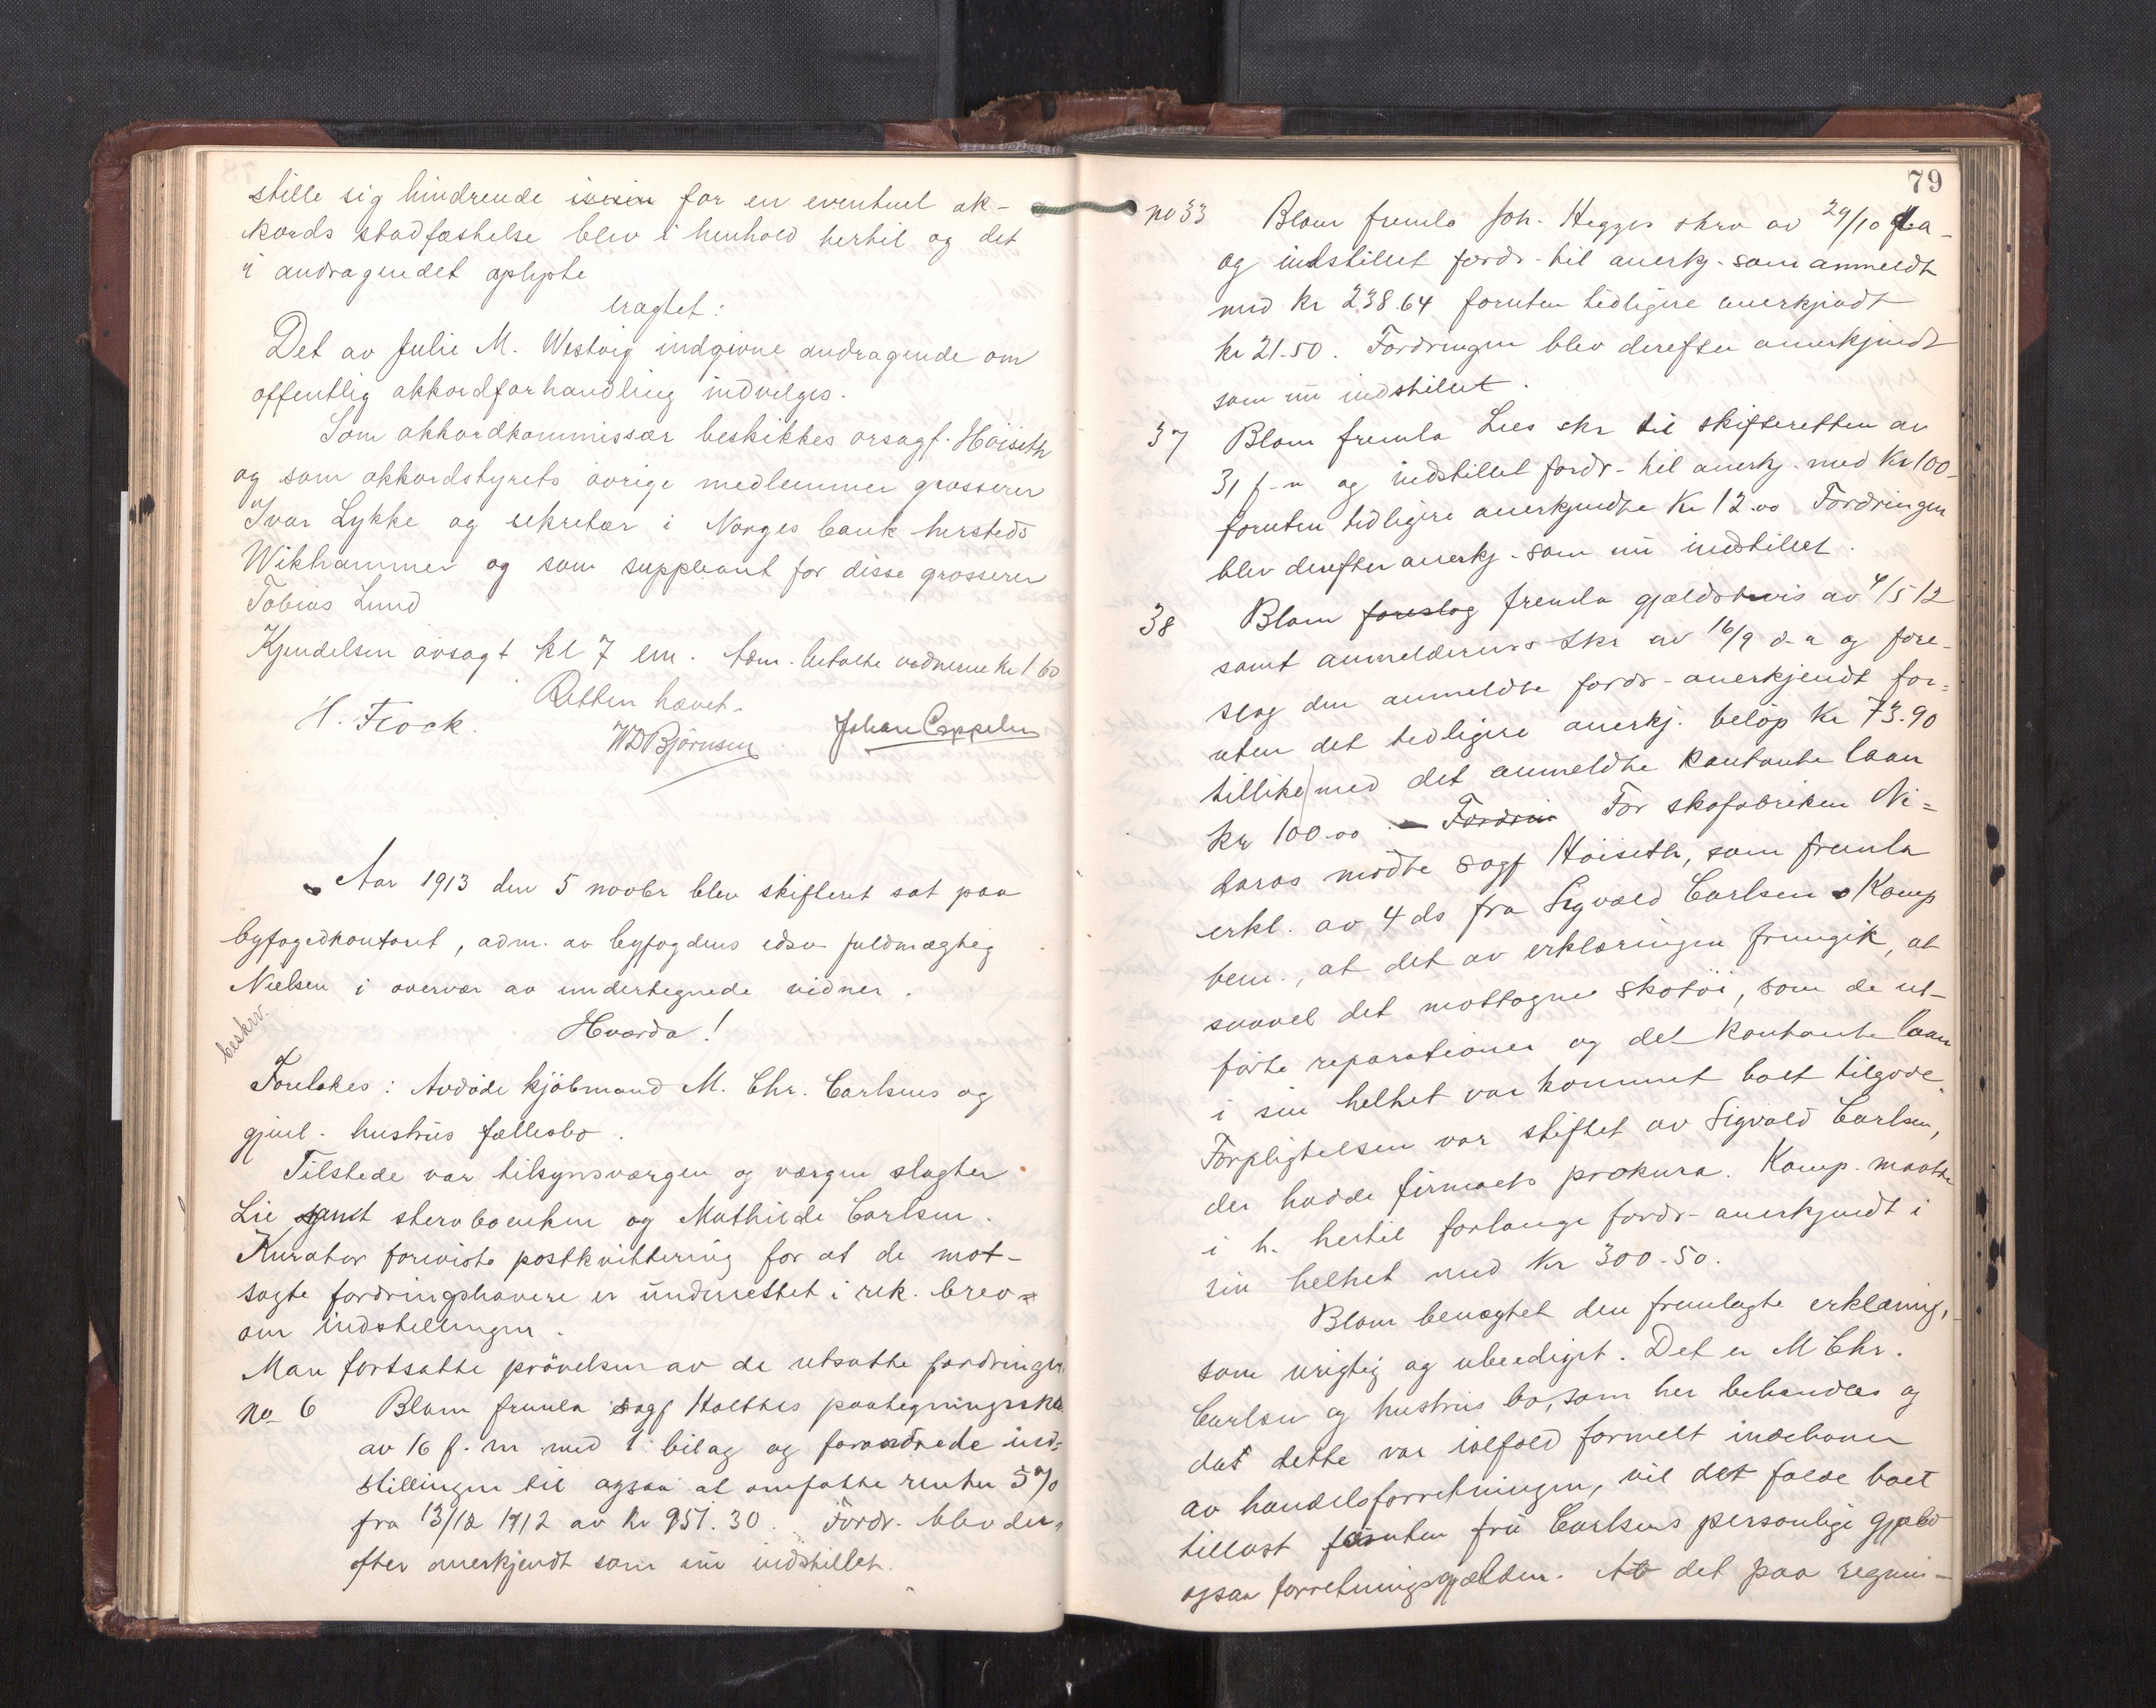 stille sig hindrende iveien for en eventuel ak-
kords stadfæstelse blev i henhold hertil og det
i andragendet oplyste
eragtet:
Det av Julie M. Westvig indgivne andragende om
offentlig akkordforhandling indvilges.
Som akkordkommissær beskikkes orsagf. Höiseth
og som akkordstyrets övrige medlemmer grosserer
Ivar Lykke og sekretær i Norges bank hersteds
Wikhammer og som suppleant for disse grosserer
Tobias Lund
Kjendelsen avsagt kl 7 em. Adm. betalte vidnerne kr 1 60
Retten hævet.
H. Flock. WD Björnsen Johan Cappelen
Aar 1913 den 5 novbr blev skifteret sat paa
byfogedkontoret, adm. av byfogdens edsv fuldmægtig
Nielsen i overvær av undertegnede vidner.
beskrv.
Hvorda!
Foretokes: Avdöde kjöbmand M. Chr. Carlsens og
gjenl. hustrus fællesbo.
Tilstede var tilsynsværgen og værgen slagter
Lie samt stervboenken og Mathilde Carlsen.
Kurator foreviste postkvittering for at de mot-
sagte fordringshavere er underrettet i rek. brev
om indstillingen.
Man fortsatte prövelsen av de utsatte fordringer
no 6 Blom fremla sagf Holthes paategningsskr
av 16 f. m med 1 bilag og forandrede ind-
stillingen til ogsaa at omfatte renter 5%
fra 13/12 1912 av kr 951.30. Fordr. blev der-
efter anerkjendt som nu indstillet.
79
no 33 Blom fremla Joh. Hegges skrv av 29/10 d.a
og indstillet fordr- til anerkj. som anmeldt
med kr 238.64 foruten tidligere anerkjendt
kr 21.50. Fordringen blev derefter anerkjendt
som nu indstillet.
37 Blom fremla Lies skr til skifteretten av
31 f-m og indstillet fordr- til anerkj. med kr 100-
foruten tidligere anerkjendte kr 12.00 Fordringen
blev derefter anerkj. som nu indstillet.
38 Blom foreslog fremla gjældsbevis av 4/5 12
samt anmelderens skr av 16/9 d. a og fore-
slog den anmeldte fordr- anerkjendt for-
uten det tidligere anerkj. belöp kr 73.90
tillike med det anmeldte kontante laan
kr 100.00 - Fordrin For skofabriken Ni-
daros mödte sagf Höiseth, som fremla
erkl. av 4 ds fra Sigvald Carlsen Komp
bem., at det av erklæringen fremgik, at
saavel det mottagne skotöi, som de ut-
förte reparationer og det kontante laan
i sin helhet var kommet boet tilgode.
Forpligtelsen var stiftet av Sigvald Carlsen,
der hadde firmaets prokura. Komp. maatte
i h. hertil forlange fordr- anerkjendt i
sin helhet med kr 300.50.
Blom benegtet den fremlagte erklæring,
som urigtig og ubeediget. Det er M Chr.
Carlsen og hustrus bo, som her behandles og
da dette var ialfald formelt indehaver
av handelsforretningen, vil det falde boet
tillast foruten fru Carlsens personlige gjæld
ogsaa forretningsgjælden. At det paa regnin-